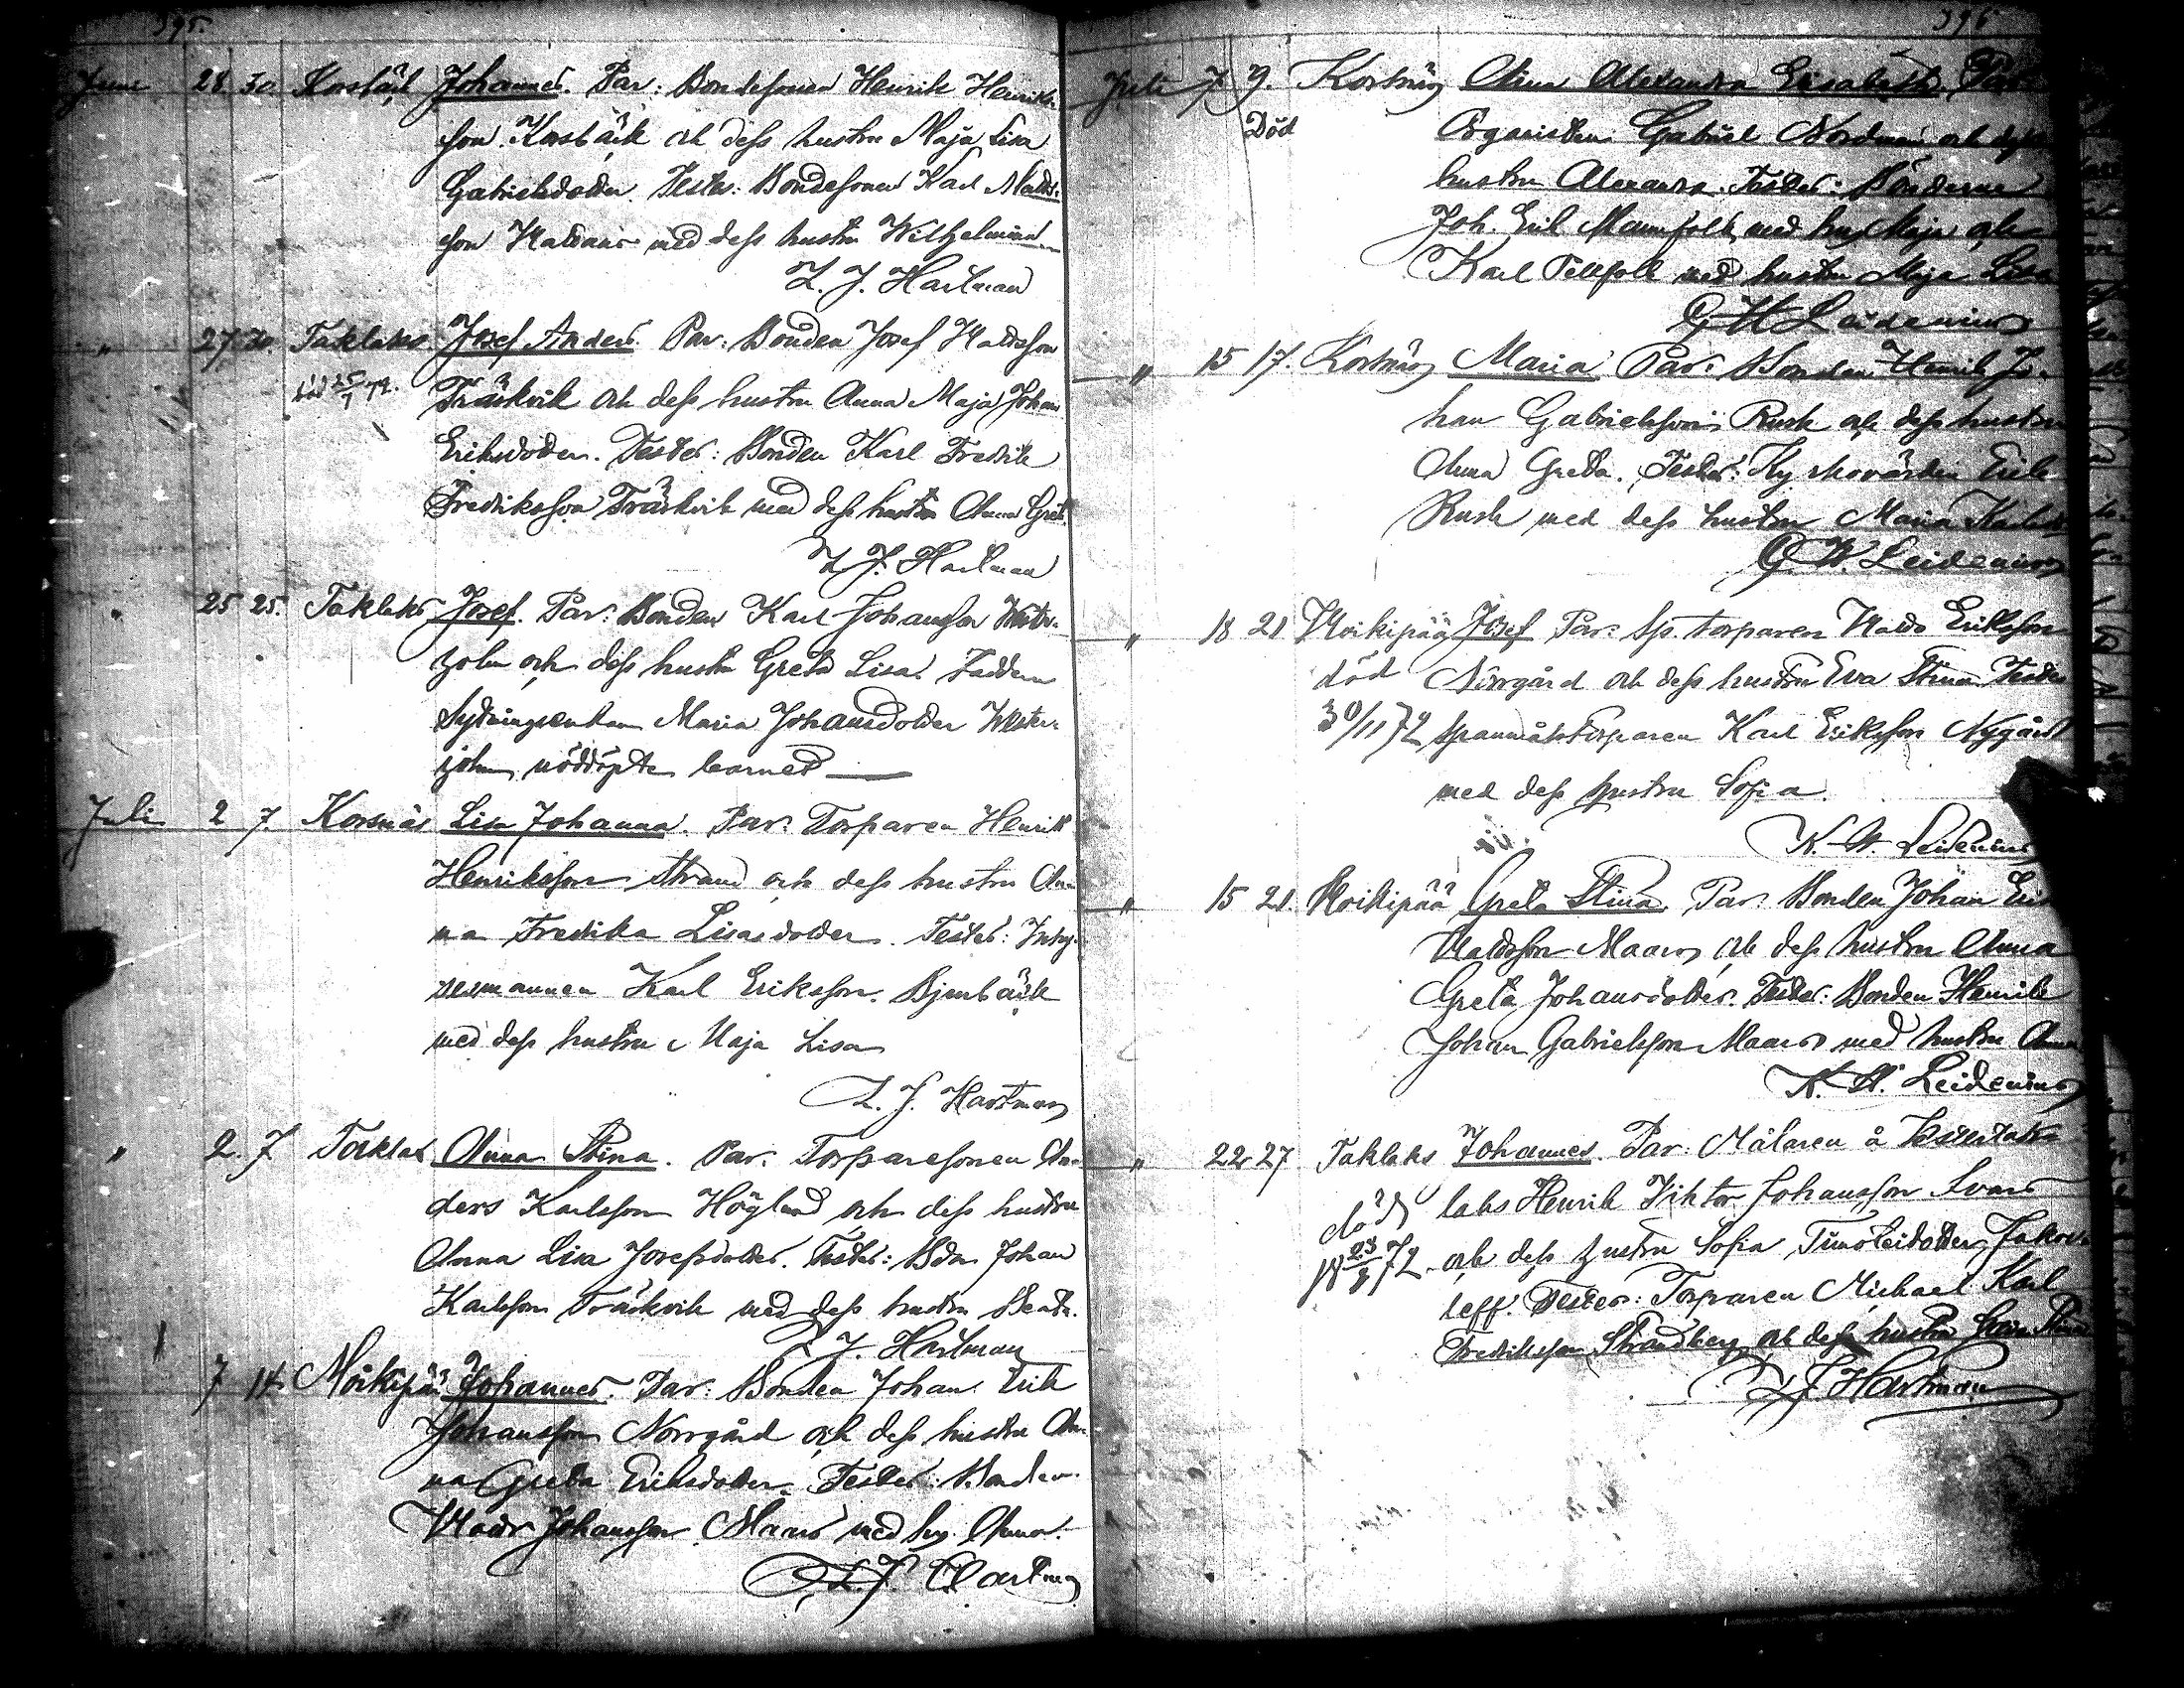 395.
Juni 28 30 Korsbäck Johannes. Par: Bondesonen Henrik Henriks
son Korsbäck och dess hustru Maja Lisa
Gabrielsdotter. Testes: Bondesonen Karl Matts
son med dess hustru Wilhelmina
L. J. Hartman
" 27 30. Taklaks Josef Anders. Par: Bonden Josef Mattsson
död 25/7 72. Träskvik och dess hustru Anna Maja Johan
Eriksdotter. Testes: Bonden Karl Fredrik
Fredriksson Träskvik med dess hustru Anna Gret.
L. J. Hartman
" 25 25. Taklaks Josef. Par: Bonden Karl Johansson Wester-
holm och dess hustru Greta Lisa. Faddern
Sytningsenkan Maria Johansdotter Wester-
holm, nöddöpte barnet
Juli 2 7. Korsnäs Lisa Johanna. Par: Torparen Henrik
Henriksson Strand och dess hustru An-
na Fredrika Lisasdotter. Testes: Inhy-
sesmannen Karl Eriksson Bjurbäck
med dess hustru Maja Lisa
L. J. Hartman
" 2. 7 Taklax Anna Stina. Par: Torparesonen An-
ders Karlsson Höglund och dess hustru
Anna Lisa Josefsdotter. Testes: Bdn Johan
Karlsson Träskvik med dess hustru Beata.
L. J. Hartman
7 14 Moikipää Johannes. Par: Bonden Johan Erik
Johansson Norrgård och dess hustru An-
na Greta Eriksdotter. Testes: Bonden
Matts Johansson Maars med hu. Anna.
L. J. Hartman
396
Juli 7 9. Korsnäs Alina Alexandra Elisabeth. Par:
Död Organisten Gabriel Nordman och dess
hustru Alexandra. Testes: Bönderne
Joh. Erik Mannfolk med hu Maja och
Karl Pellfolk med hustru Maja Lisa
G W Leidenius
" 15 17. Korsnäs Maria Par: Bonden Henrik Jo-
han Gabrielsson Rusk och dess hustru
Anna Greta. Testes: Kyrkovärden Erik
Rusk med dess hustru Maria Karlsd
G. W. Leidenius
" 18 21 Moikipää Josef Par: Sp. torparen Matts Eriksson
död Norrgård och dess hustru Eva Stina. Testes
30/11 72 Spanmålstorparen Karl Eriksson Nygård
med dess hustru Sofia.
K. W. Leidenius
" 15 21. Moikipää Greta Stina. Par: Bonden Johan Erik
Mattsson Maars och dess hustru Anna
Greta Johansdotter. Testes: Bonden Henrik
Johan Gabrielsson Maars med hustru Anna
K. W. Leidenius
" 22 27 Taklaks Johannes. Par: Målaren å
död laks Henrik Viktor Johansson Svars
18 23/8 72. och dess hustru Sofia Timoteidotter Jakov-
leff. Testes: Torparen Michael Karl
Fredriksson Strandberg och dess hustru Greta Stina
L J. Hartman